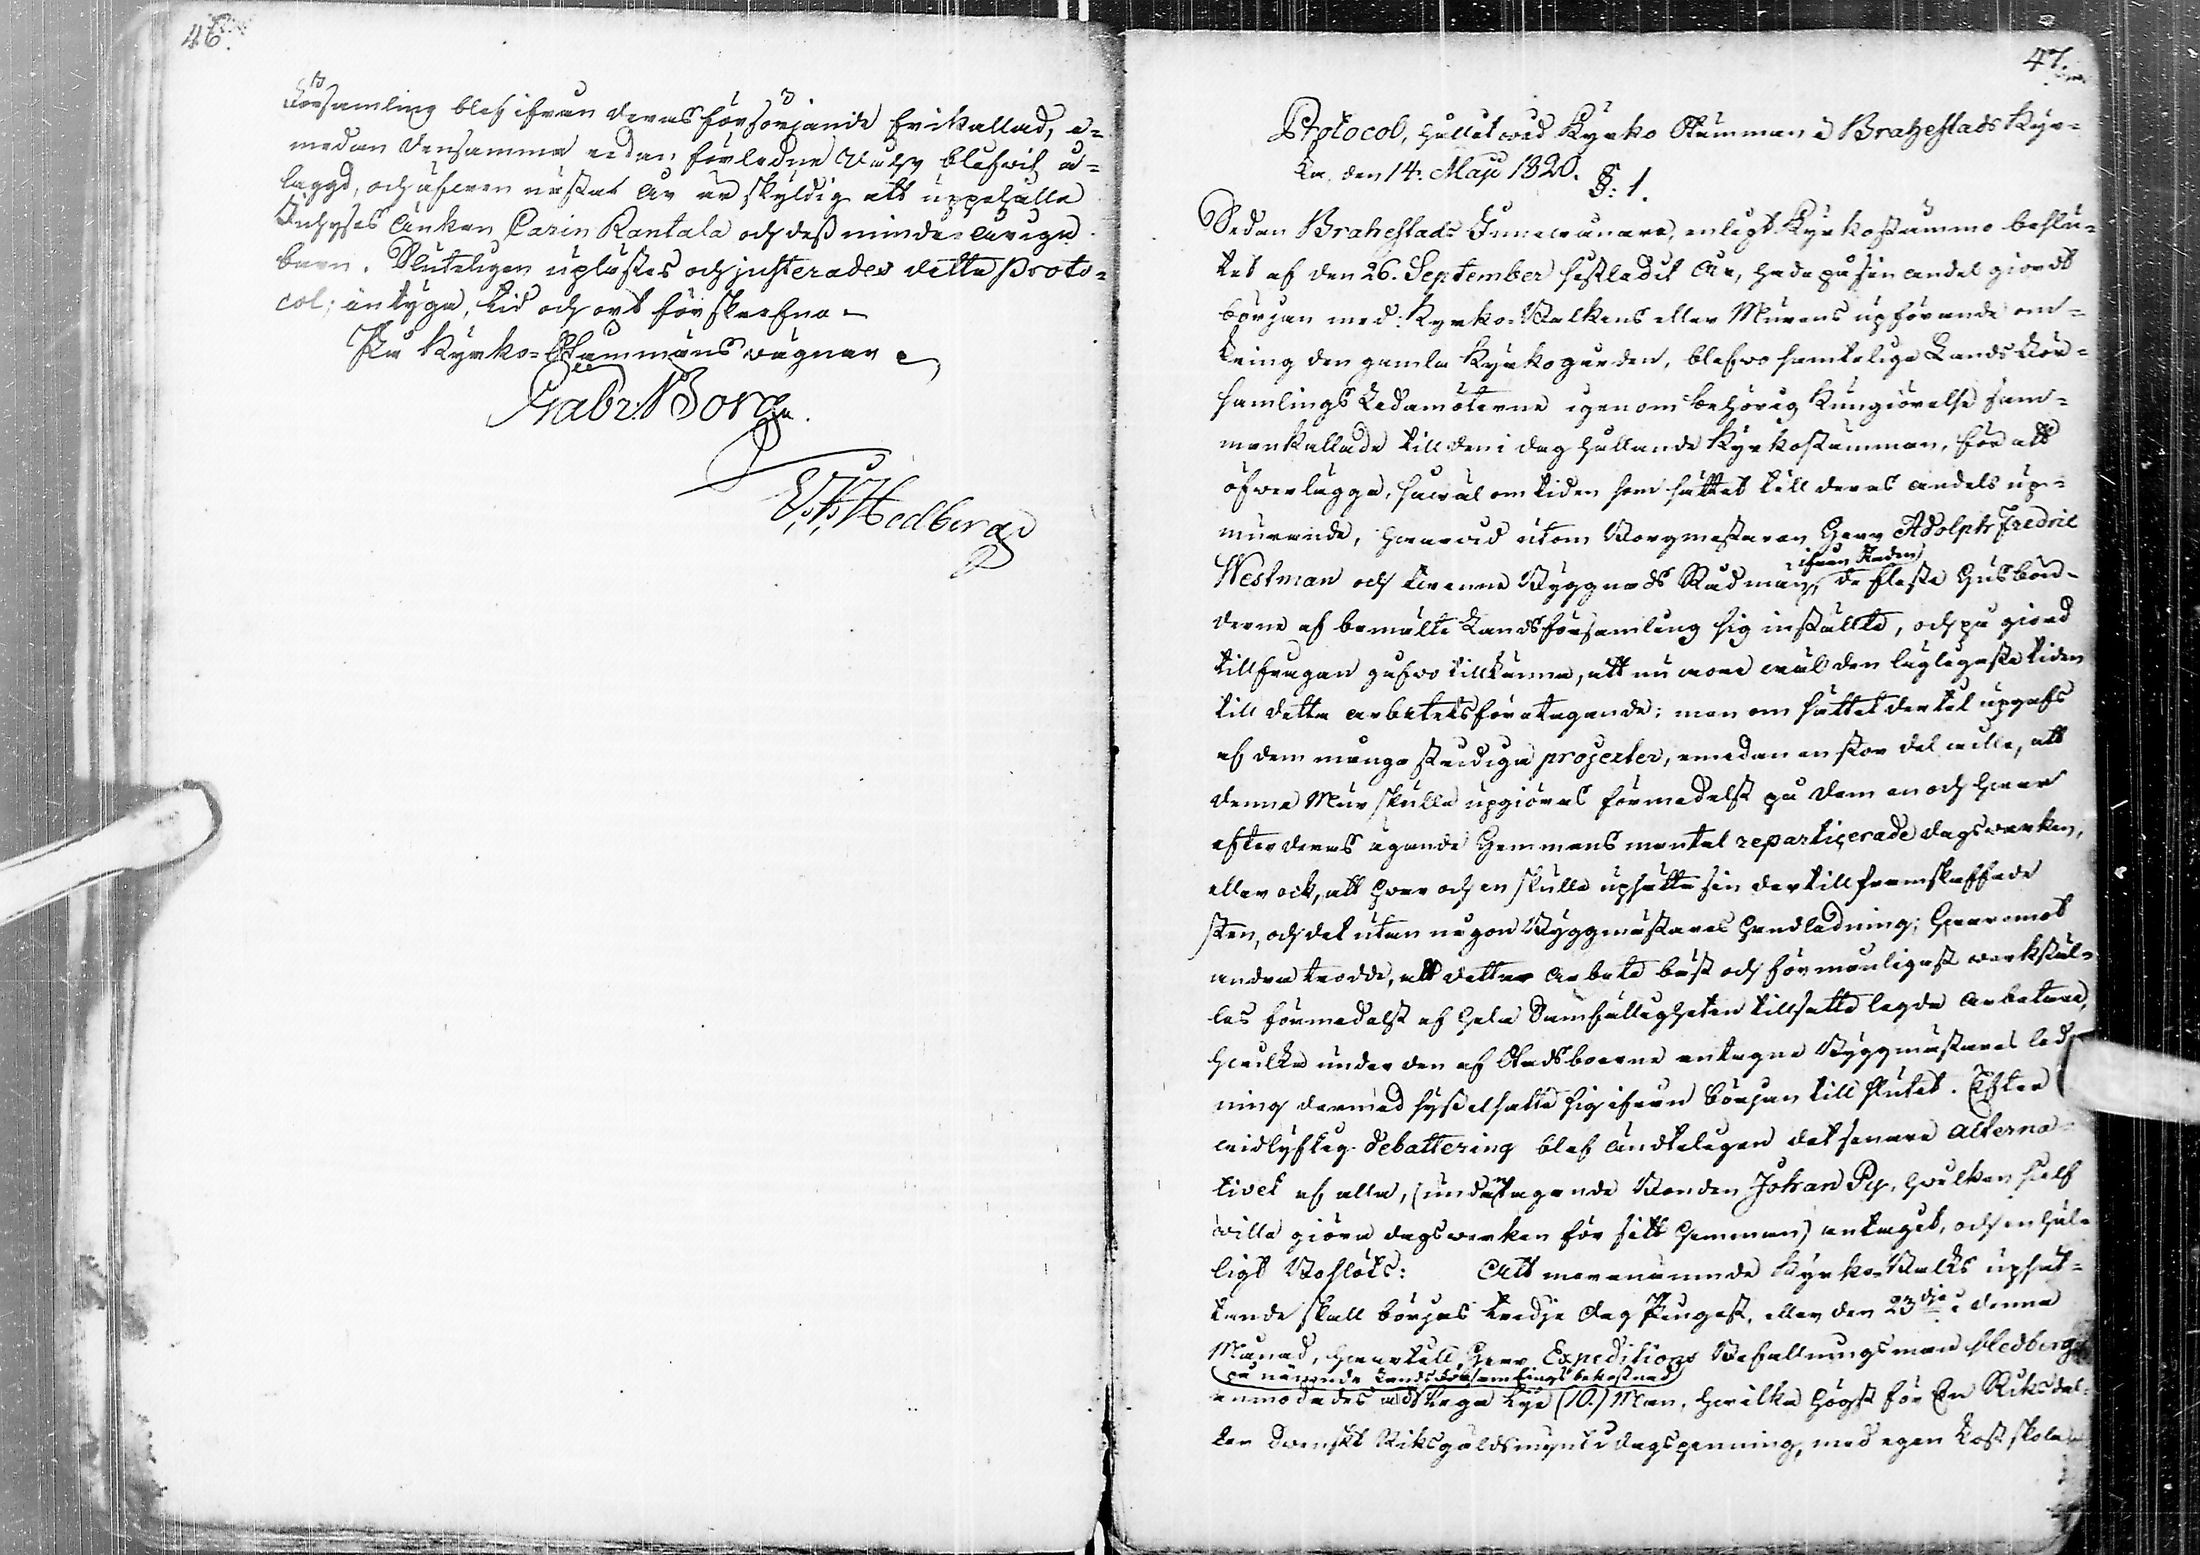 46.
Församling blef ifrån deras försörjande frikallad, e=
medan densamma redan förledne Vuhr blifwit å=
laggd, och äfwen nästa År är skyldig att uppehålla
Inhyses Änkan Carin Rantala och dess minderåriga
barn. Sluteligen uplästes och justerades detta Proto=
col; intyga, tid och ort förskrefne.
På Kyrko=Stämmans wägnar
Gabr: Borg.
Hedberg
47.
Protocol, hållet wid Kyrko Stämman i Brahestads Kyr=
ka den 14. Maji 1820.
§: 1.
Sedan Brahestads Innewånare, enligt Kyrkostämmo beslu=
tet af den 26. September sistledit År, hade på sin andel giordt
början med Kyrko-Balkens eller Murens upförande om=
kring den gamla Kyrkogården, blefwo samtelige Lands För=
samlings Ledamöterne igenom behörig Kungiörelse sam=
mankallade till den i dag hållande Kyrkostämman, för att
öfwerlägga, såwäl om tiden som sättet till deras andels up=
murande, hwarwid utom Borgmästaren Herr Adolph Fredric
Westman och twenne Byggnads Rådmän, ifrån Staden de flesta Husbön=
derne af bemälte Landsförsamling sig inställte, och på giord
tillfrågan gåfwo tillkänna, att nu wore wäl den lägligaste tiden
till detta arbetets företagande; men om sättet dertil upgafs
af dem många stridiga projecter, emedan en stor del wille, att
denna Mur skulle upgiöras förmedelst på dem en och hwar
efter deras ägande Hemmans mantal reparticerade dagswerken,
eller ock, att hwar och en skulle upsätta sin dertill framskaffade
sten, och det utan någon Byggmästares handledning; Hwaremot
andra trodde, att detta arbete bäst och förmånligast werkstäl=
les förmedelst af hela Samfälligheten tillsatte legda Arbetare,
hwilka under den af Stadsboerne antagne Byggmästares led=
ning dermed sysselsatte sig ifrån början till slutet. Efter
widlyftig debattering blef ändteligen det senare alterna=
tivet af alla, (undantagande Bonden Johan Py, hwilken sielf
wille giöra dagswerken för sitt hemman) antaget, och enhäl=
ligt Beslöts: Att merenämnde Kyrko-Balks upsät=
tande skall börjas tredje dag Pingst, eller den 23dje i denna
Månad, hwartill Herr Expeditions Befallningsman Hedberg
på nämnde Landsförsamlings bekostnad
anmodades att lega tije (10.) Man, hwilka högst för En Riksdal=
ler Swenskt Riksgäldsmynt i dagspenning, med egen kost skola